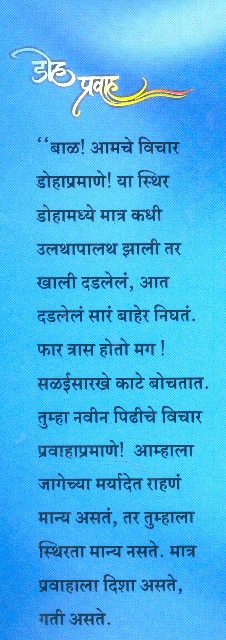 डोह
प्रवाह
“बाळ! आमचे विचार
डोहाप्रमाणे! या स्थिर
डोहामध्ये मात्र कधी
उलथापालथ झाली तर
खाली दडलेलं, आत
दडलेलं सारं बाहेर निघतं.
फार त्रास होतो मग !
सळईसारखे काटे बोचतात.
तुम्हा नवीन पिढीचे विचार
प्रवाहाप्रमाणे! आम्हाला
जागेच्या मर्यादेत राहणं
मान्य असतं, तर तुम्हाला
स्थिरता मान्य नसते. मात्र
प्रवाहाला दिशा असते,
गती असते.